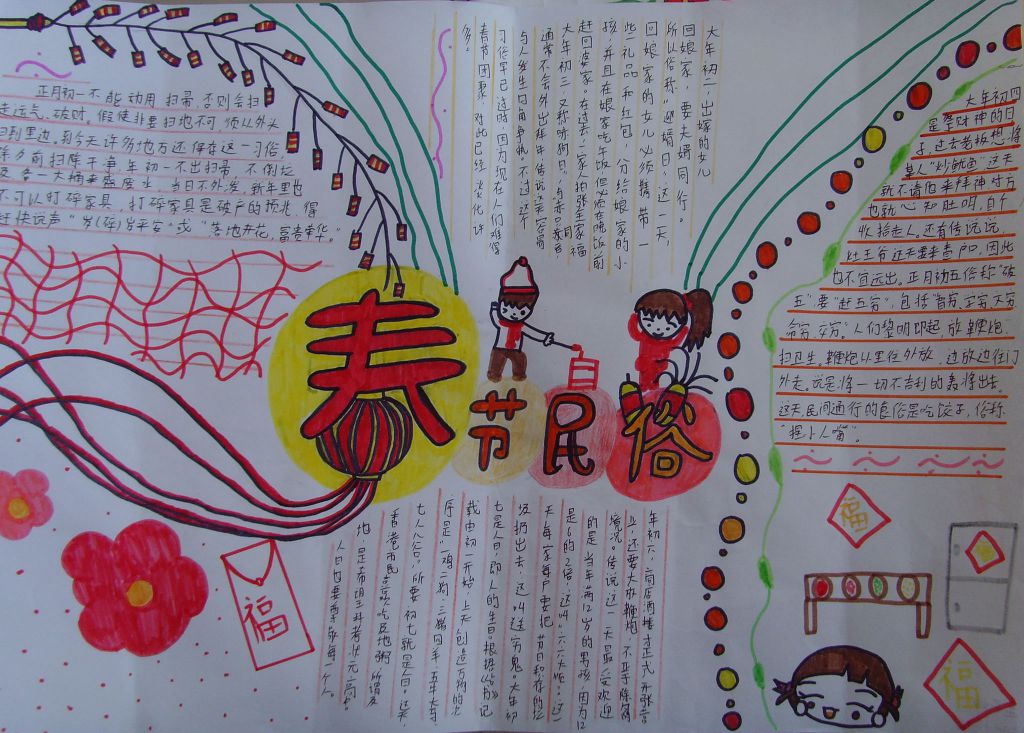 正月初一不能动用扫帚,否则会扫
走运气、破财。假使非要扫地不可,须从外头
扫到里边。到今天许多地方还保存这一习俗,
除夕前扫除干净,年初一不出扫帚,不倒垃
圾,备一大桶来盛废水,当日不外泼。新年里也
不可以打碎家具,打碎家具是破产的预兆,得
赶快说声"岁(碎)岁平安"或"落地开花,富贵荣华。"
大年初二,出嫁的女儿
回娘家,要夫婿同行。
所以俗称"迎婿日",这一天,
回娘家的女儿必须携带一
些礼品和红包,分给娘家的小
孩,并且在娘家吃午饭,但必须在晚饭前
赶回婆家。在过去,一家人拍张全家福
大年初三,又称
通常不会外出拜年,传说这天容易
与人发生口角争执。不过这个
习俗早已过时,因为现在人们难得
春节团聚,对此已经淡化许
多。
春
节民俗
大年初四
是祭财神的日
子,过去老板想将
某人"炒鱿鱼",这天
就不请他来拜神,对方
也就心知肚明,自个
收拾走人。还有传说说,
灶王爷这天要来查户口,因此
也不宜远出。正月初五俗称"破
五",要"赶五穷",包括"智穷、学穷、文穷
命穷、交穷"。人们黎明即起,放鞭炮
扫卫生。鞭炮从里往外放,边放边往门
外走。说是将一切不吉利的轰将出去。
这天,民间通行的食俗是吃饺子,俗称
"捏小人嘴"。
年初六,商店酒楼才正式开张营
业,还要大放鞭炮,不亚于除夕的
境况。传说这一天最受欢迎
的是当年满12岁的男孩,因为12
是6的2倍,这叫六六大顺。这一
天,每一家每户要把节日积存的垃
圾扔出去,这叫送穷鬼。大年初
七是人日,即人的生日。根据《占书》记
载由初一开始,上天创造万物的次
序是"一鸡二狗,三猪四羊,五牛六马,
七人八谷",所以初七就是人日。这天
香港市民喜欢吃及地粥,所谓及
地,是帝期至科考状元
人日也要尊敬每一个人。
福
福
福